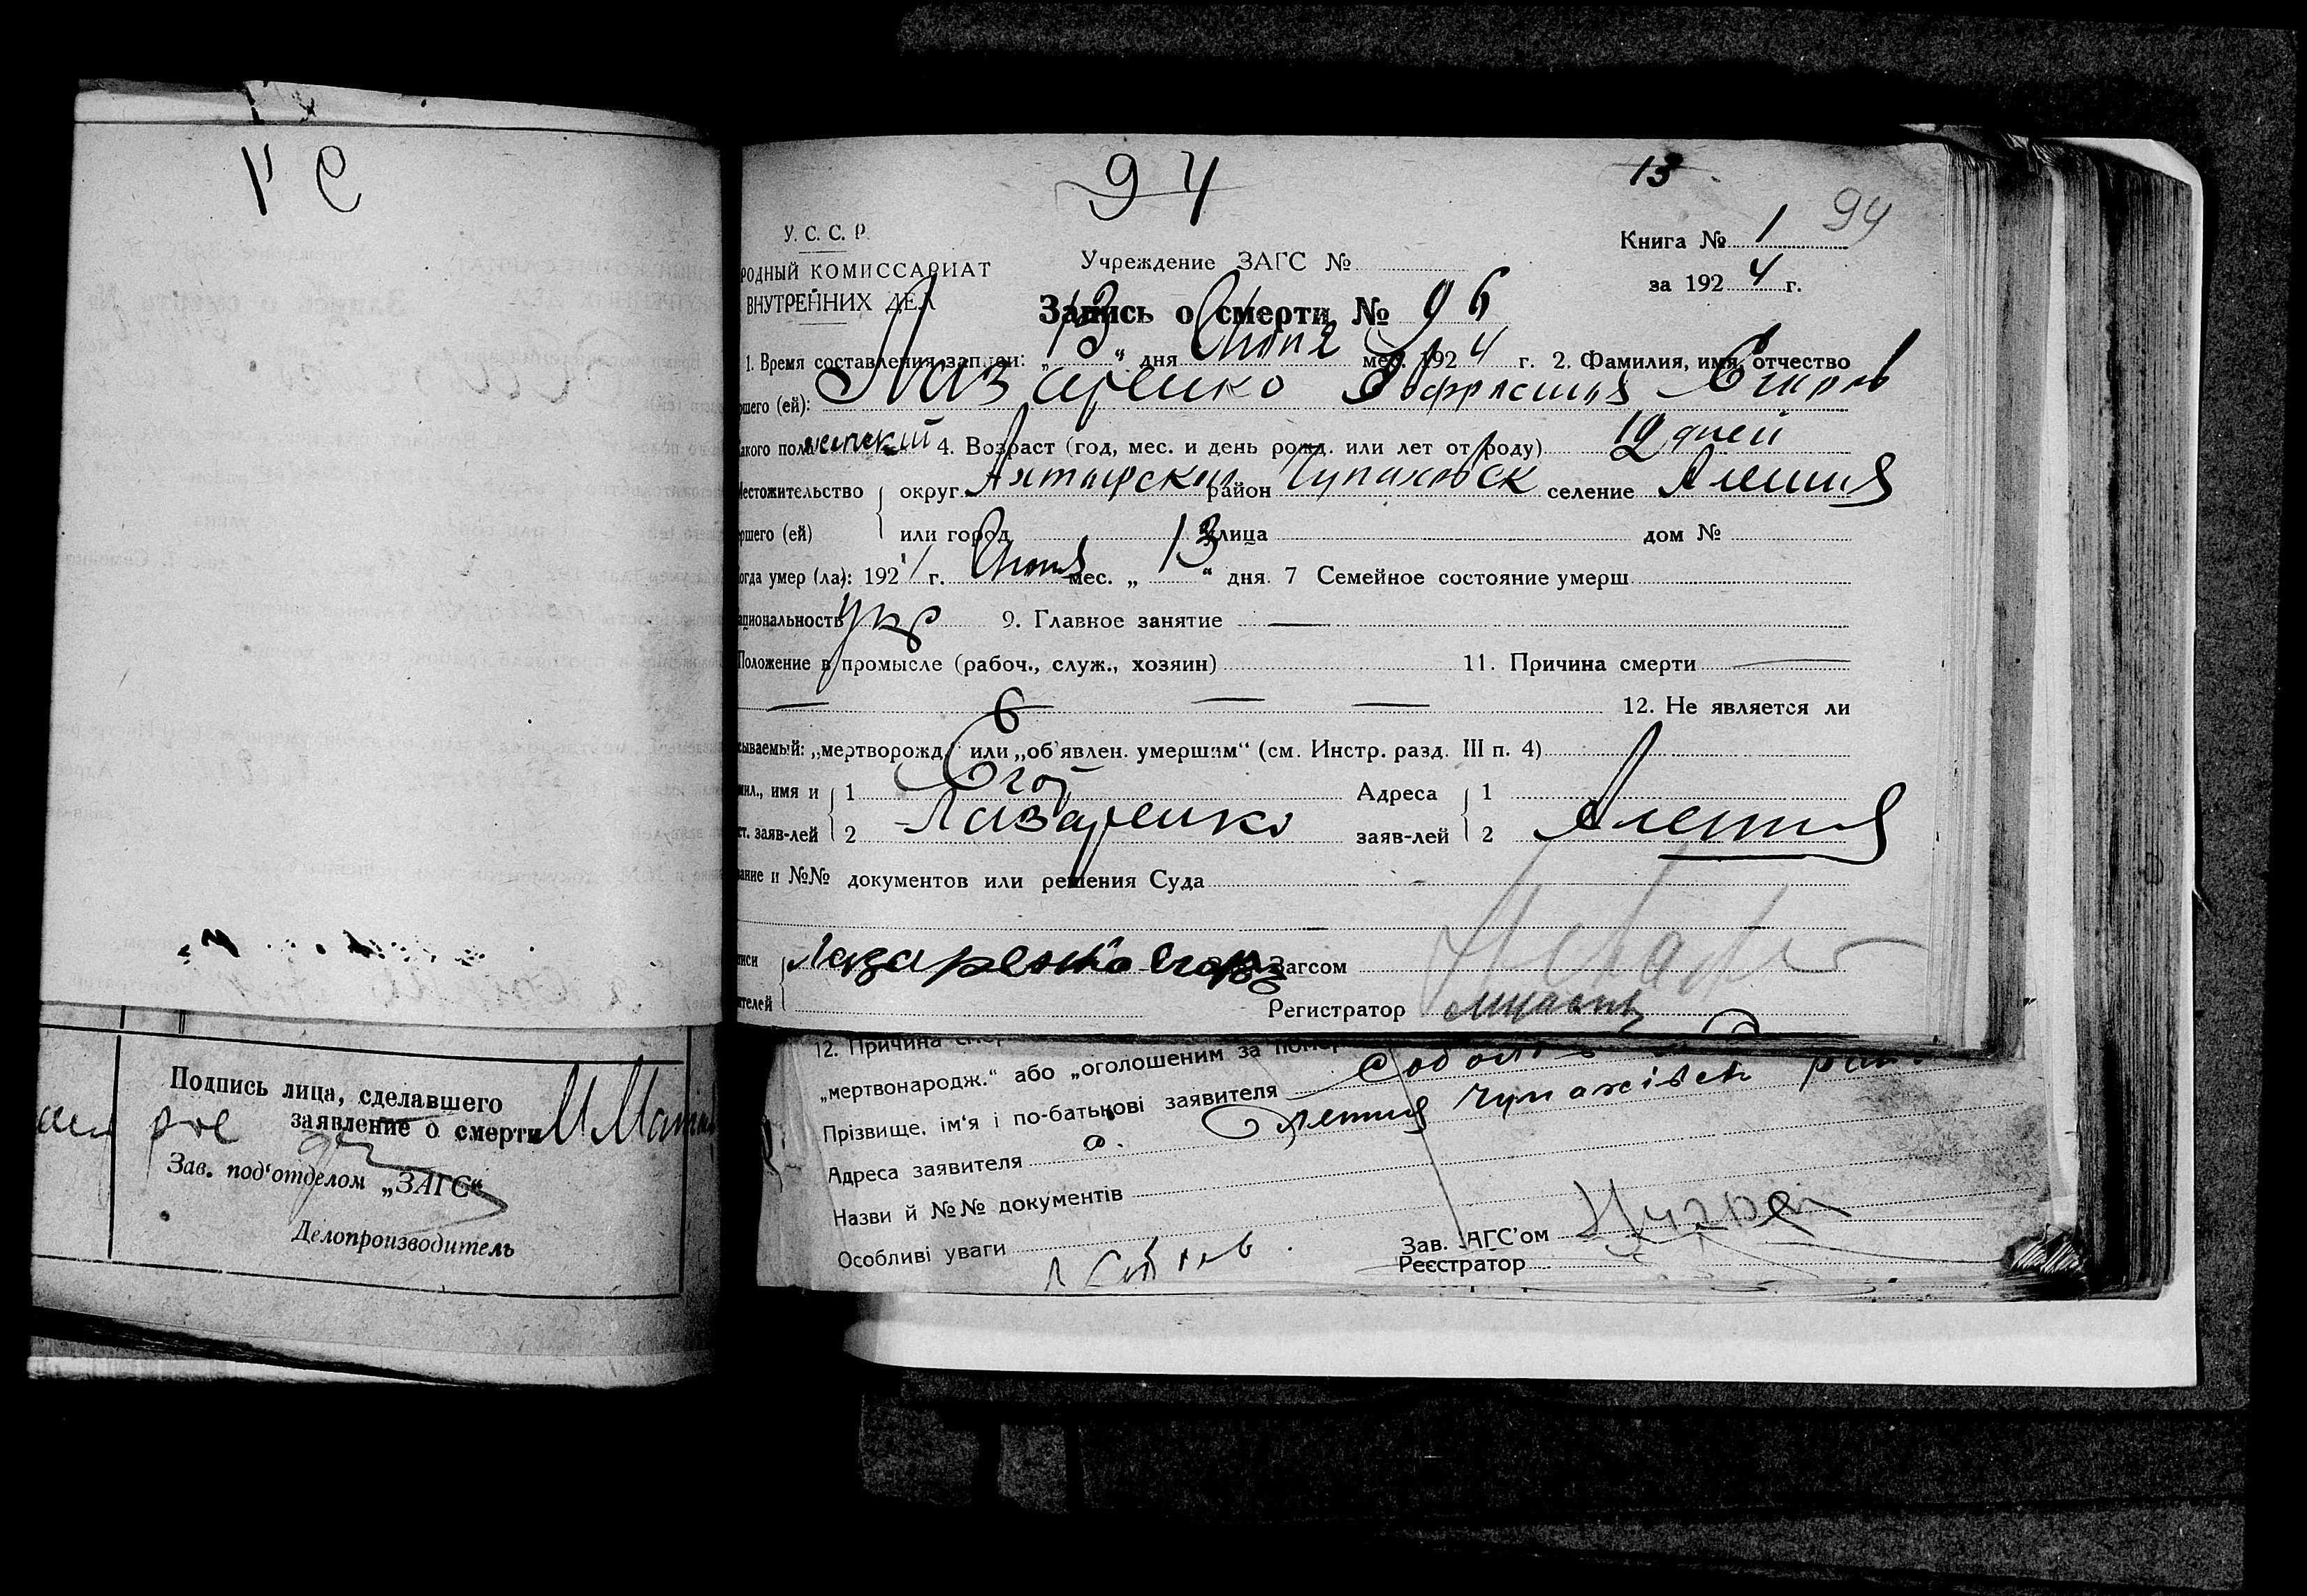 94
13
94
У. С. С. Р.
Книга № 1
РОДНЫЙ КОМИССАРИАТ
Учреждение ЗАГС №
ВНУТРЕННИХ ДЕЛ
за 1924 г.
Запись о смерти № 96
1. Время составления записи: „13“ дня Июня мес. 1924 г. 2. Фамилия, имя, отчество
ршего (ей): Назаренко Евфросиния Егоров
акого пола женский 4. Возраст (год, мес. и день рожд. или лет от роду) 12 дней
Местожительство округ Ахтырский район Чупаховск селение Алешня
ршего (ей) или город улица дом №
огда умер (ла): 1924 г. Июня мес. „13“ дня. 7 Семейное состояние умерш.
ациональность укр 9. Главное занятие —
Положение в промысле (рабоч., служ., хозяин) 11. Причина смерти —
— — — 12. Не является ли
сываемый: „мертворожд.“ или „об'явлен. умершим“ (см. Инстр. разд. III п. 4)
мил., имя и 1 Егор Адреса 1
ст. заяв-лей 2 Лазаренко заяв-лей 2 Алешня
вание и №№ документов или решения Суда
писи Лазаренко Егор Загсом
ителей Регистратор
12. Причина
„мертвонародж.“ або „оголошеним за
Прізвище, ім'я і по-батькові заявителя
Адреса заявителя Олешня Чупахівск
Назви й №№ документів
Особливі уваги
Зав. АГС'ом
Реєстратор
Подпись лица, сделавшего
заявление о смерти
Зав. под'отделом „ЗАГС“
Делопроизводитель